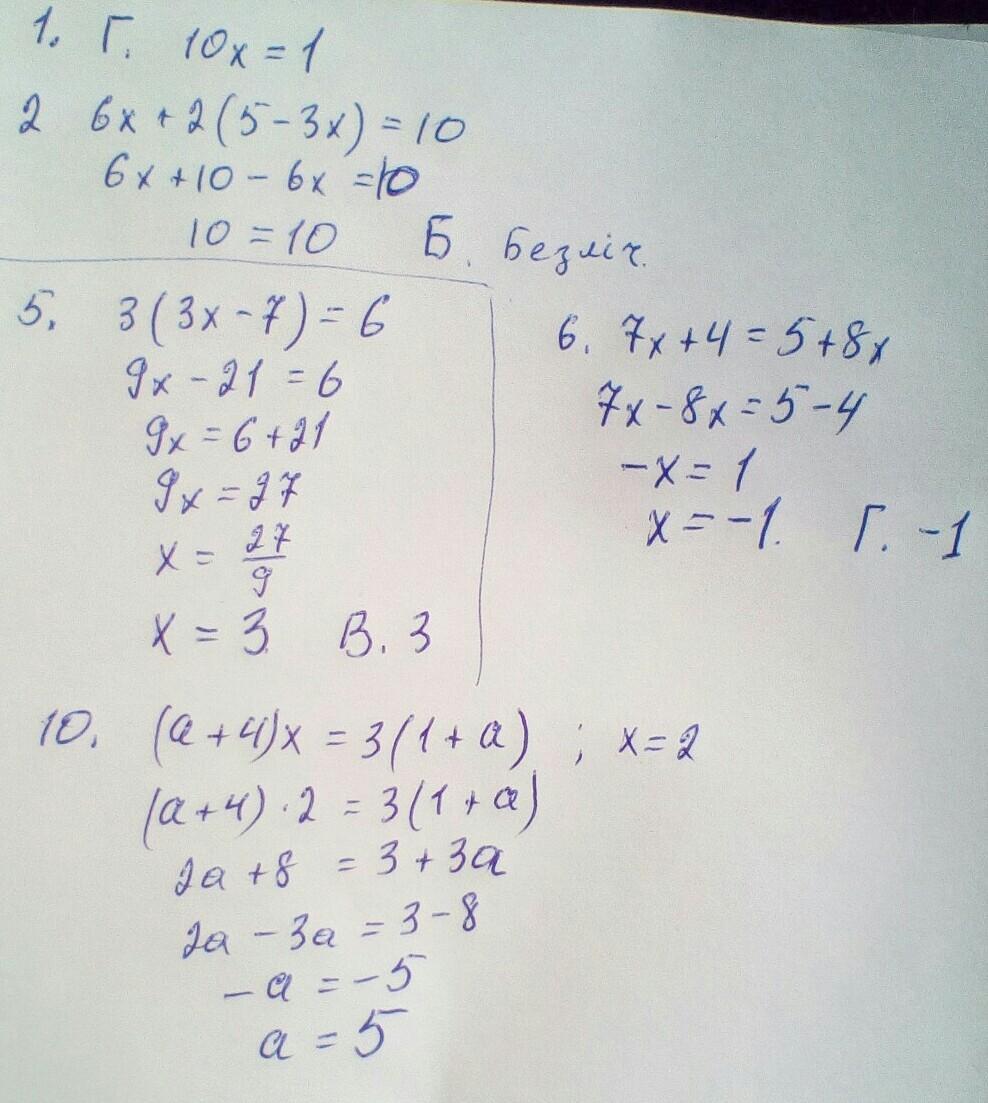 1. Г. 10x = 1
2 6x + 2(5 - 3x) = 10
6x + 10 - 6x = 10
10 = 10 Б. Безліч.
5. 3(3x - 7) = 6
9x - 21 = 6
9x = 6 + 21
9x = 27
x = 27/9
x = 3 В. 3
6. 7x + 4 = 5 + 8x
7x - 8x = 5 - 4
-x = 1
x = -1. Г. -1
10. (a + 4)x = 3(1 + a) ; x = 2
(a + 4) · 2 = 3(1 + a)
2a + 8 = 3 + 3a
2a - 3a = 3 - 8
-a = -5
a = 5